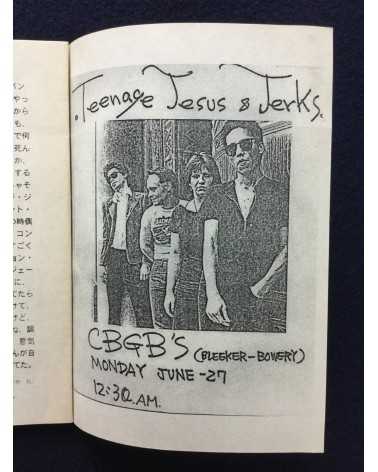 ン
やっ
から
も、
で何
死ん
か、
する
ゃそ
・ジ
ト・
の時偶
コン
ごく
ョン・
ジェー
に、
でたら
けて、
けど、
な、調
意気
んが自
てた。
Teenage Jesus & Jerks.
CBGB'S (BLEEKER-BOWERY)
MONDAY JUNE-27
12:30 A.M.